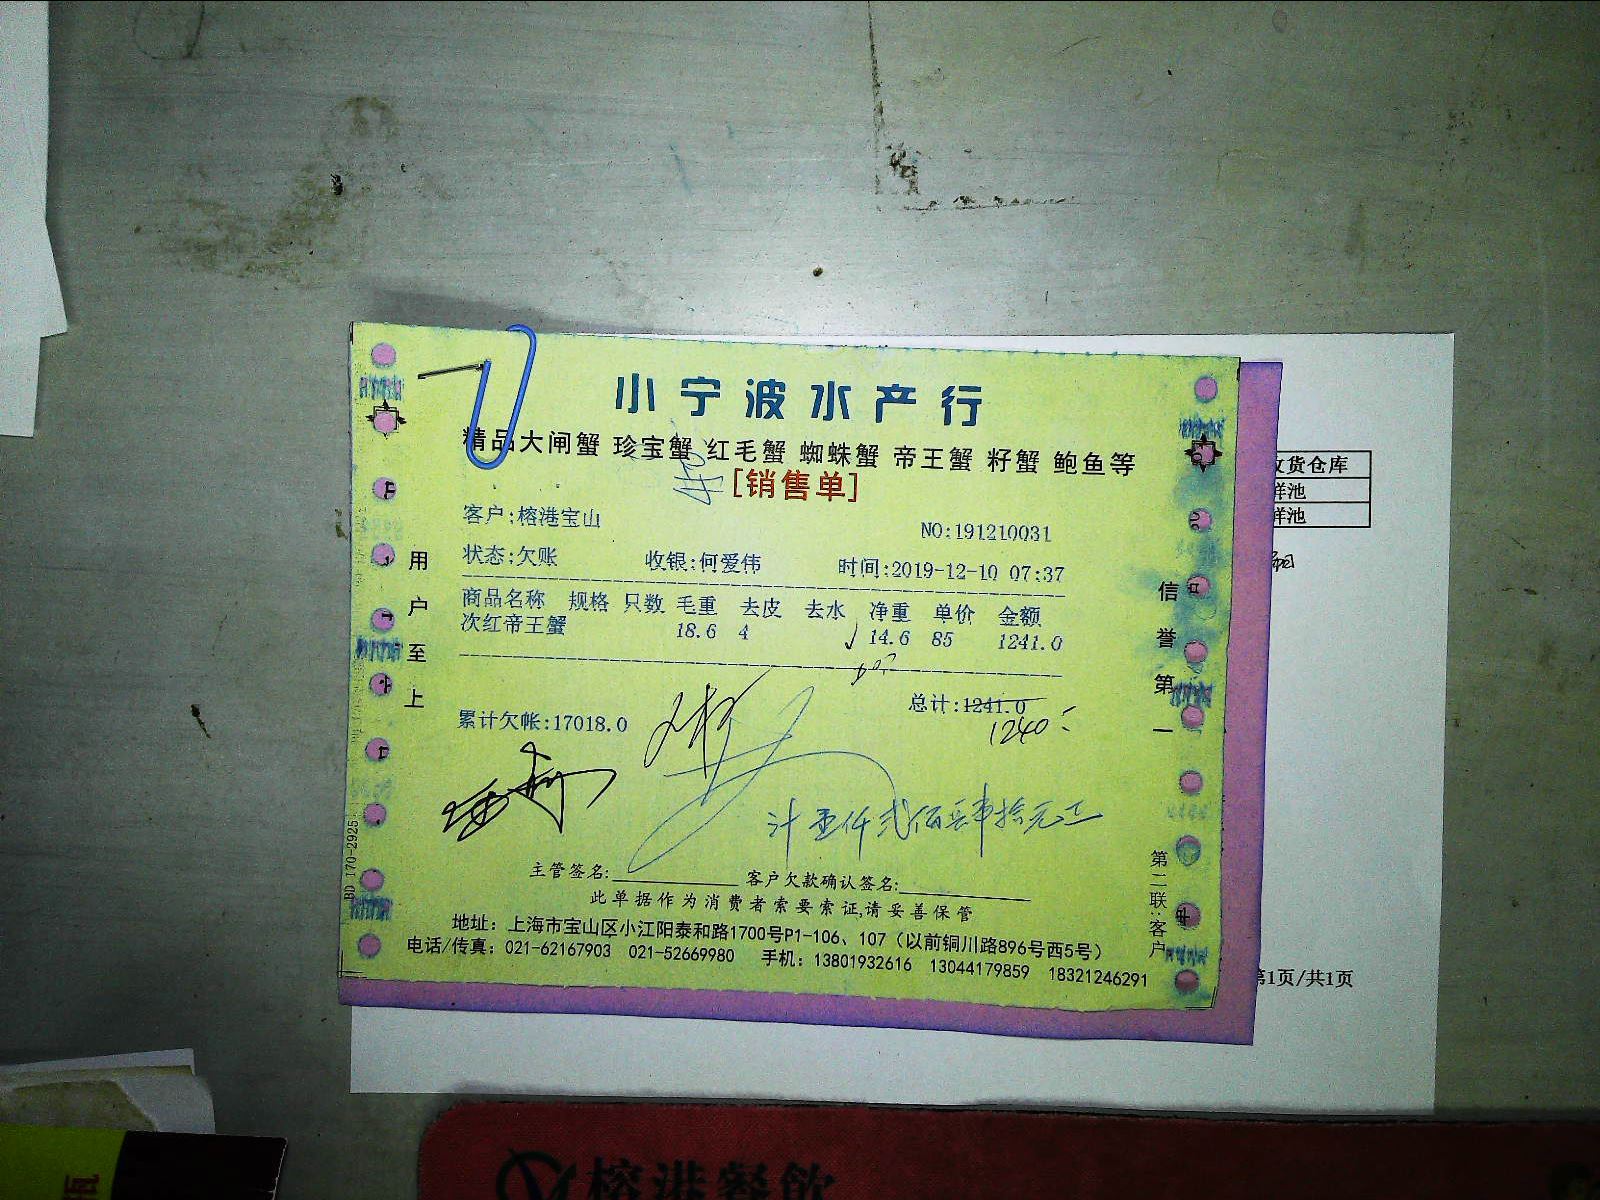 小宁波水产行
精品大闸蟹 珍宝蟹 红毛蟹 蜘蛛蟹 帝王蟹 籽蟹 鲍鱼等
[销售单]
客户:榕港宝山
NO:191210031
状态:欠账 收银:何爱伟 时间:2019-12-10 07:37
商品名称 规格 只数 毛重 去皮 去水 净重 单价 金额
次红帝王蟹 18.6 4 14.6 85 1241.0
总计:1241.0
1240
累计欠帐:17018.0
计壹仟贰佰肆拾元正
主管签名: 客户欠款确认签名:
此单据作为消费者索要索证,请妥善保管
地址：上海市宝山区小江阳泰和路1700号P1-106、107（以前铜川路896号西5号）
电话/传真：021-62167903 021-52669980 手机：13801932616 13044179859 18321246291
用户至上
信誉第一
第二联:客户
BD 170-2925
收货仓库
鲜池
鲜池
第1页/共1页
榕港餐飲